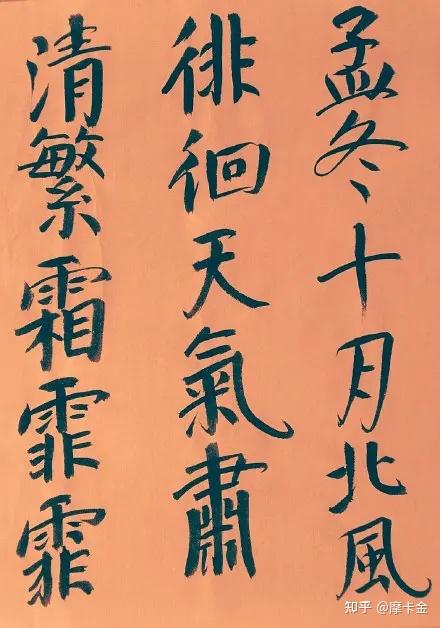 孟冬十月北風
徘徊天氣肅
清繁霜霏霏
知乎 @摩卡金